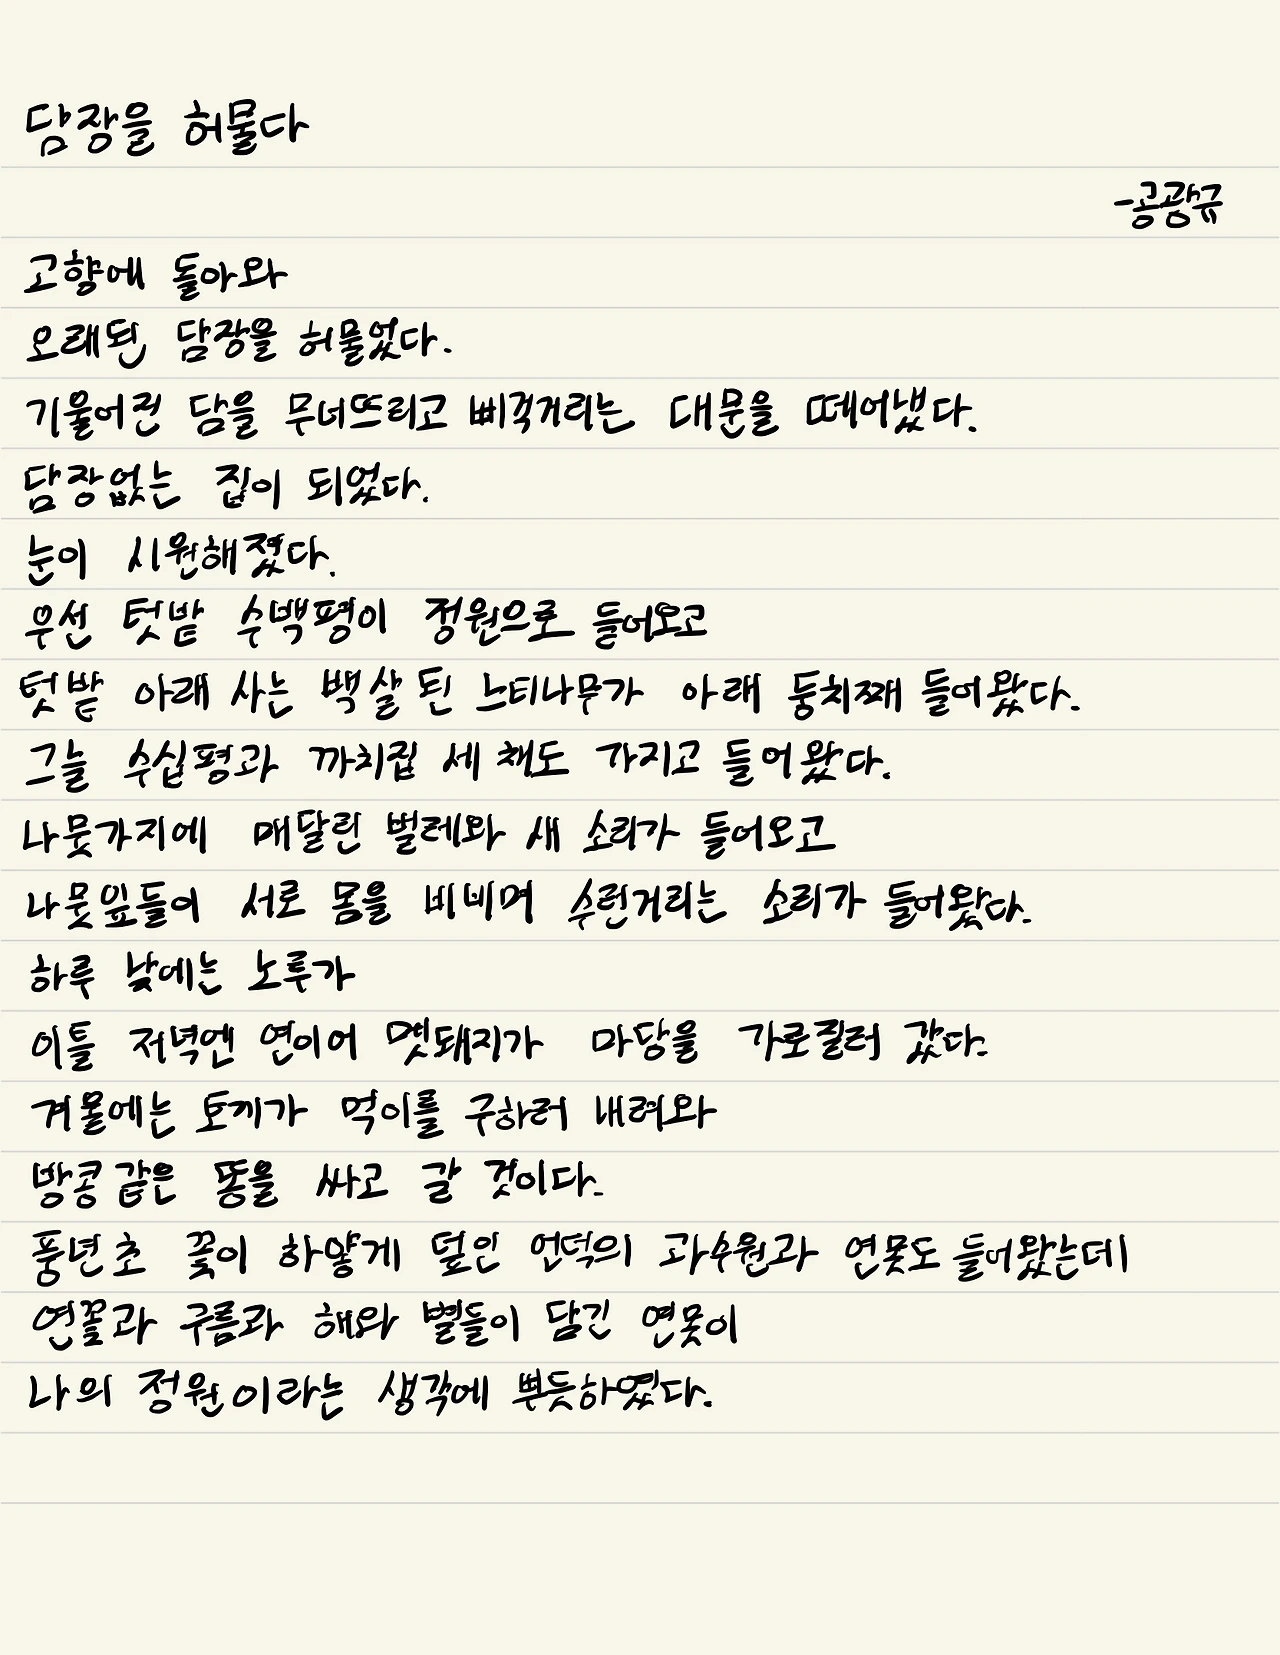 담장을 허물다
-공광규
고향에 돌아와
오래된 담장을 허물었다.
기울어진 담을 무너뜨리고 삐걱거리는 대문을 떼어냈다.
담장없는 집이 되었다.
눈이 시원해졌다.
우선 텃밭 수백평이 정원으로 들어오고
텃밭 아래 사는 백살 된 느티나무가 아래 둥치째 들어왔다.
그늘 수십평과 까치집 세 채도 가지고 들어왔다.
나뭇가지에 매달린 벌레와 새 소리가 들어오고
나뭇잎들이 서로 몸을 비비며 수런거리는 소리가 들어왔다.
하루 낮에는 노루가
이틀 저녁엔 연이어 멧돼지가 마당을 가로질러 갔다.
겨울에는 토끼가 먹이를 구하러 내려와
방콩같은 똥을 싸고 갈 것이다.
풍년초 꽃이 하얗게 덮인 언덕의 과수원과 연못도 들어왔는데
연꽃과 구름과 해와 별들이 담긴 연못이
나의 정원이라는 생각에 뿌듯하였다.